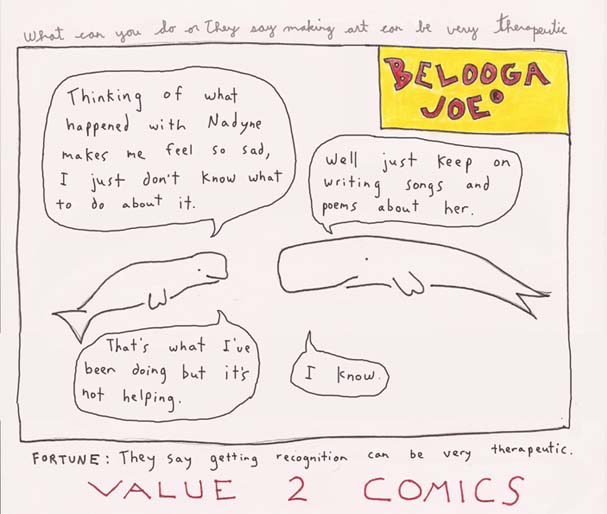 What can you do or They say making art can be very therapeutic
BELOOGA
JOE
Thinking of what
happened with Nadyne
makes me feel so sad,
I just don't know what
to do about it.
Well just keep on
writing songs and
poems about her.
That's what I've
been doing but it's
not helping.
I know.
FORTUNE: They say getting recognition can be very therapeutic.
VALUE 2 COMICS